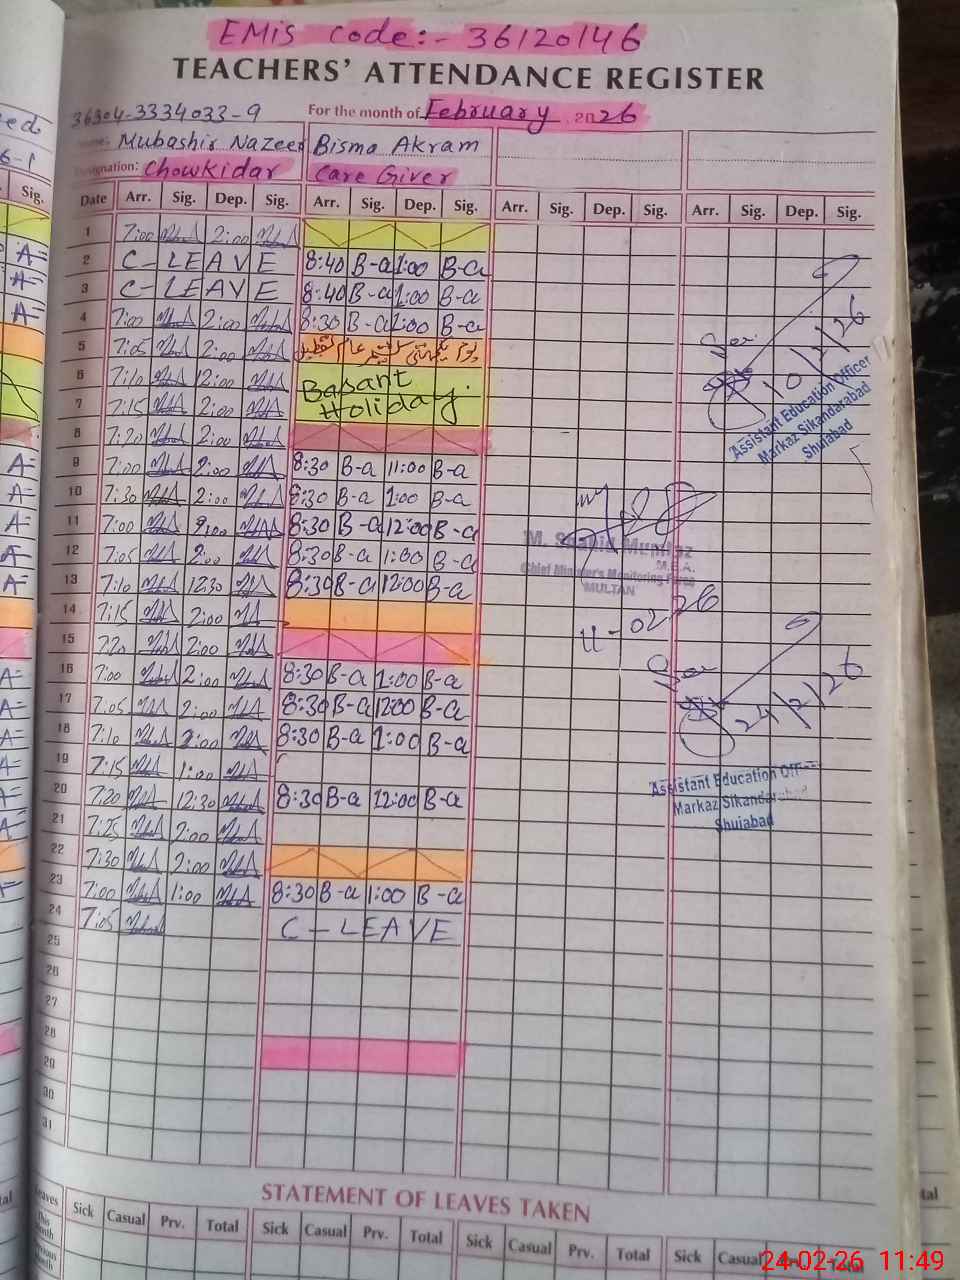 EMis code:- 36120146
TEACHERS' ATTENDANCE REGISTER
36304-3334033-9 For the month of February 2026
Name: Mubashir Nazeer Bisma Akram
Designation: Chowkidar Care Giver
Date Arr. Sig. Dep. Sig. Arr. Sig. Dep. Sig. Arr. Sig. Dep. Sig. Arr. Sig. Dep. Sig.
1 7:00 2:00
2 C- LEAVE 8:40 B-a 1:00 B-a
3 C- LEAVE 8:40 B-a 1:00 B-a
4 7:00 2:00 8:30 B-a 1:00 B-a
5 7:05 2:00
6 7:10 12:00 Basant
7 7:15 2:00 Holiday.
8 7:20 2:00
9 7:00 2:00 8:30 B-a 11:00 B-a
10 7:30 2:00 8:30 B-a 1:00 B-a
11 7:00 8:30 B-a 12:00 B-a
12 7:05 2:00 8:30 B-a 1:00 B-a
13 7:10 12:30 8:30 B-a 12:00 B-a
14 7:15 2:00
15 7:20 2:00
16 7:00 2:00 8:30 B-a 1:00 B-a
17 7:05 2:00 8:30 B-a 12:00 B-a
18 7:10 2:00 8:30 B-a 1:00 B-a
19 7:15 1:00
20 7:20 12:30 8:30 B-a 12:00 B-a
21 7:25 2:00
22 7:30 2:00
23 7:00 1:00 8:30 B-a 1:00 B-a
24 7:05 C - LEAVE
25
26
27
28
29
30
31
10/2/26
Assistant Education Officer
Markaz Sikandarabad
Shujabad
M. Shahid Mumtaz
M.B.A.
Chief Minister's Monitoring Force
MULTAN
11-02-26
24/2/26
Assistant Education Off
Markaz Sikandarabad
Shujabad
STATEMENT OF LEAVES TAKEN
Leaves Sick Casual Prv. Total Sick Casual Prv. Total Sick Casual Prv. Total Sick Casual Prv. Total
This Month
24-02-26 11:49